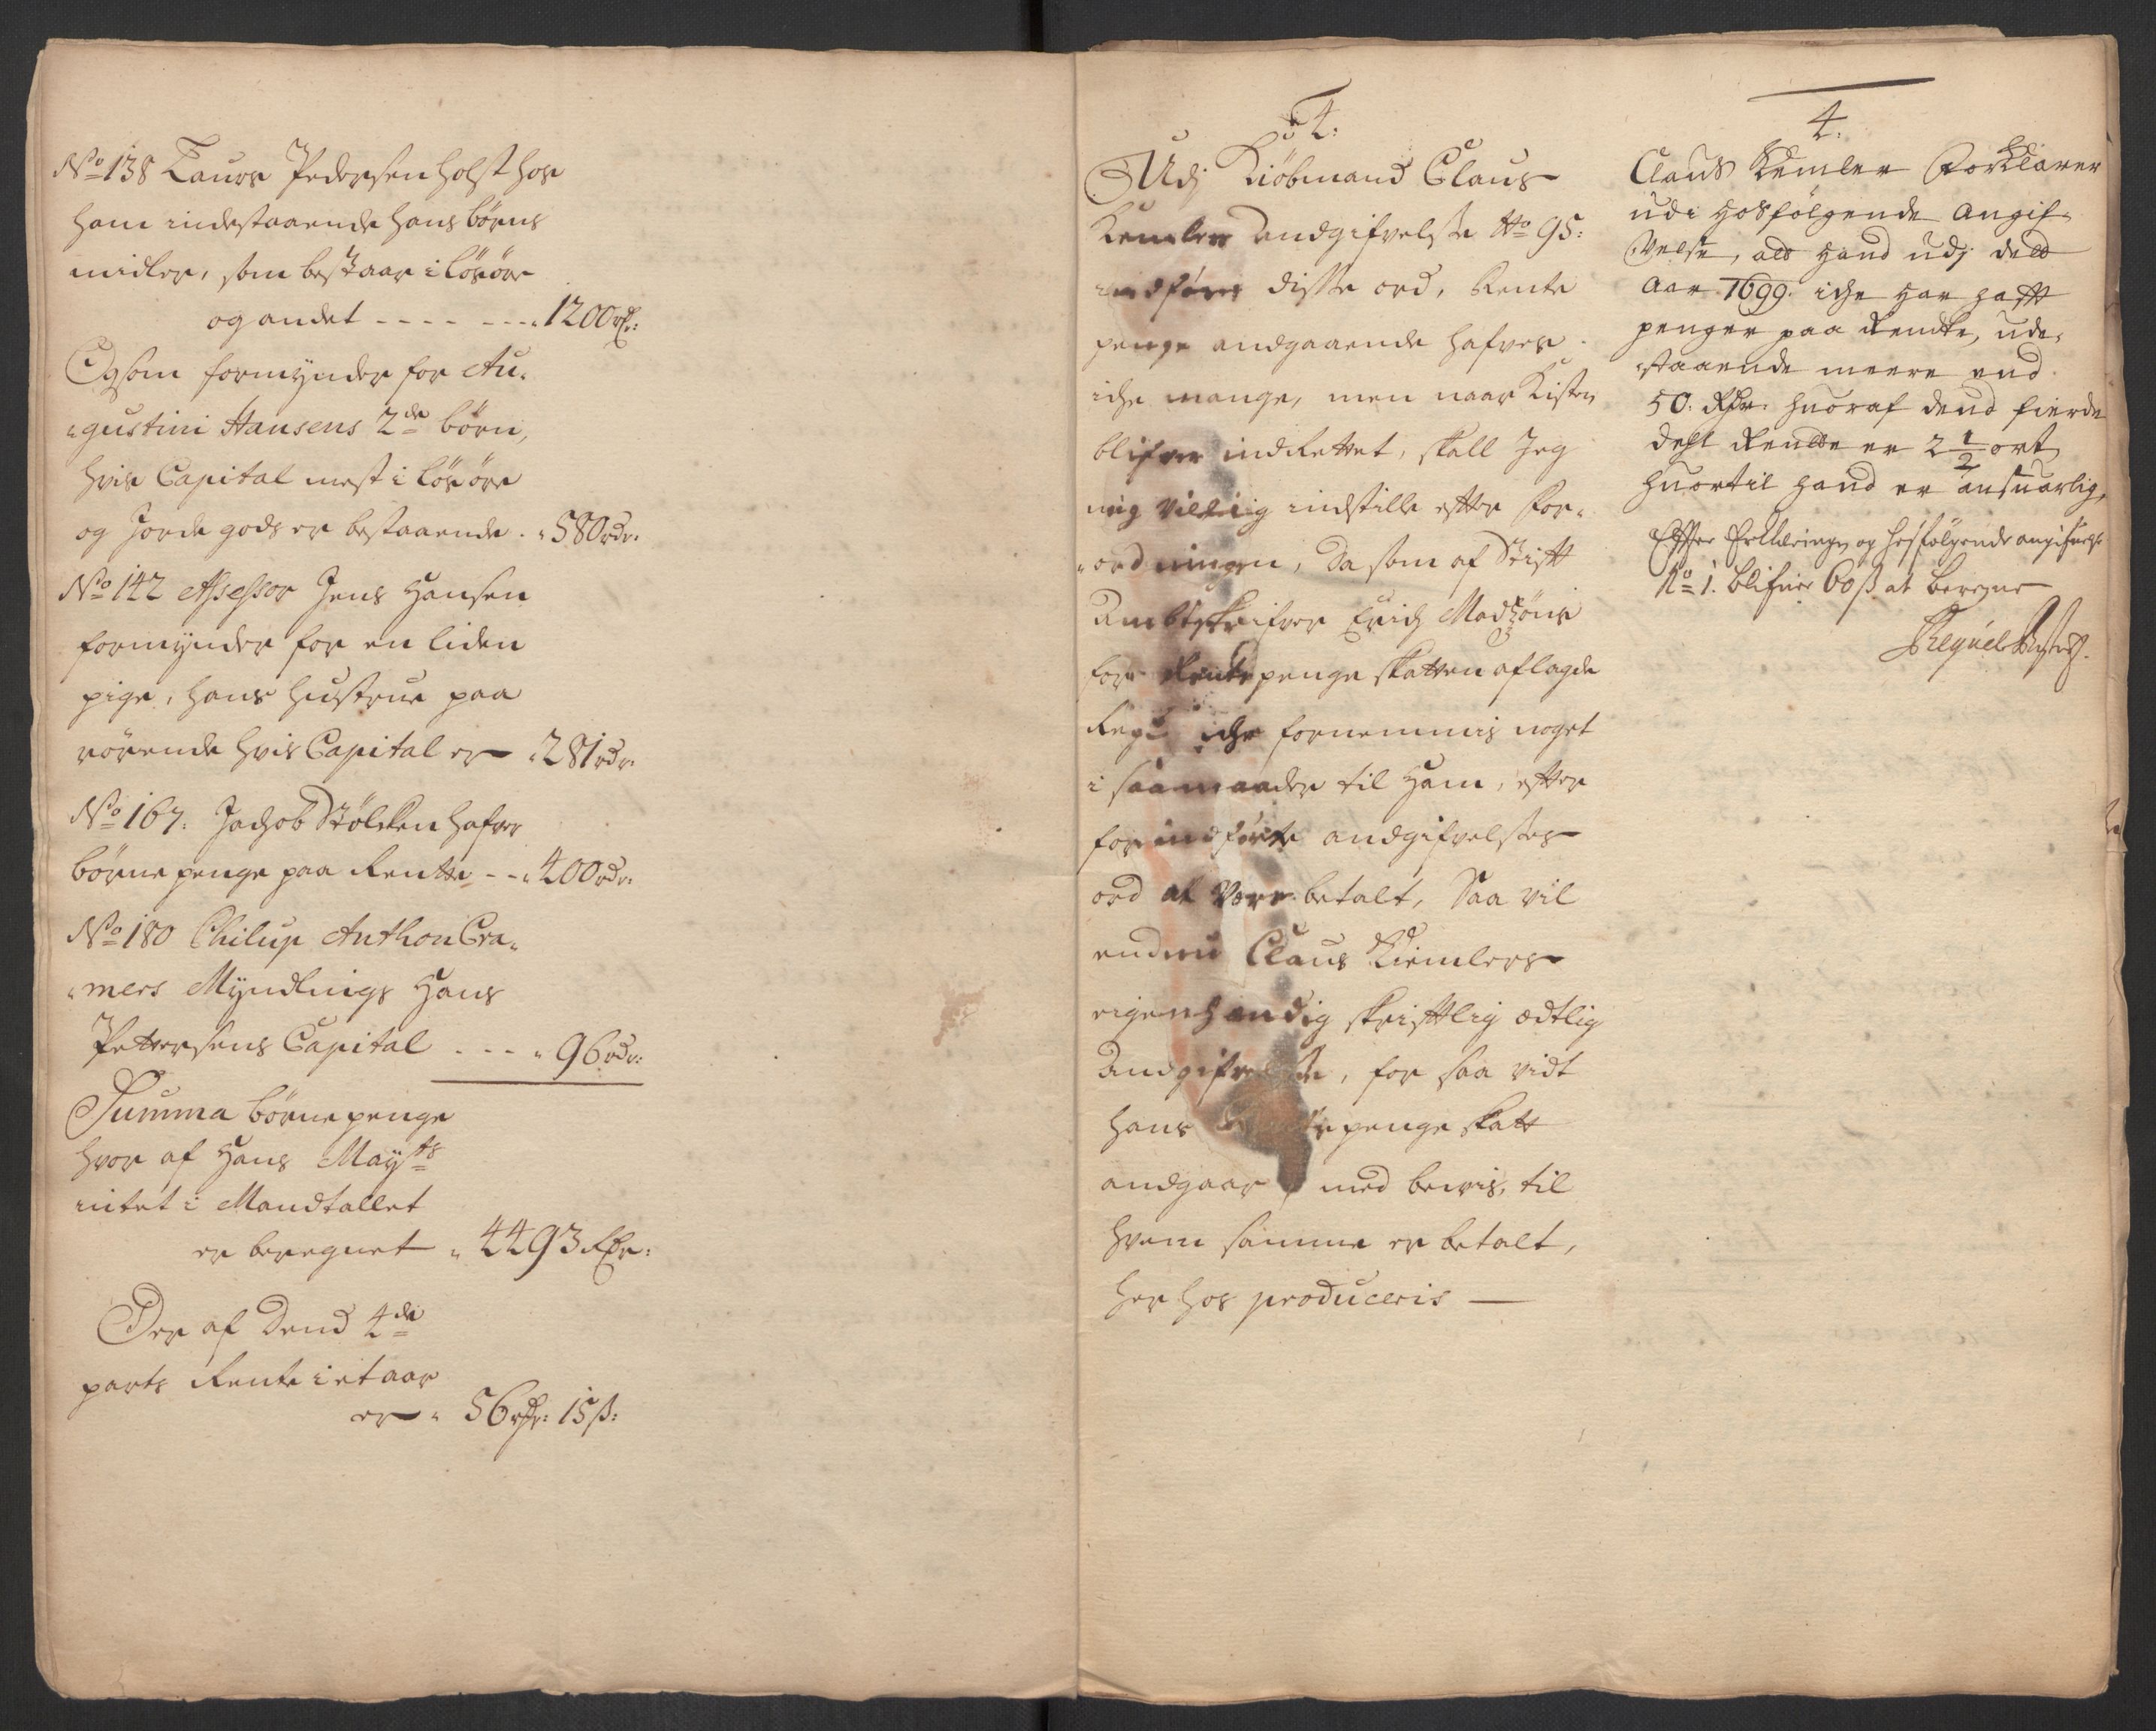 No 138 Laurs Pedersen Holst hos
ham indestaaende hans børns
midler, som bestaar i løsøre
og andet - - - - - - - 1200 rdr:
Og som formynder for Au-
gustini Hansens 2de børn,
hvis Capital mest i løsøre
og Jorde gods er bestaaende. 580 rdr.
No 142 Assessor Jens Hansen
formynder for en liden
pige, hans hustrue paa
rørende hvis Capital er 281 rdr.
No 167. Jachob Stølcken hafver
børne penge paa Rentte - - 400 rdr.
No 180 Philup Anthon Cra-
mers Myndlings Hans
Pettersens Capital - - - 96 rdr:
Summa børne penge
hvor af Hans Mayts
intet i Mandtallet
er beregnet 4493 Rdr:
Der af Dend 4de
parts Rente i et aar
er 56 rdr: 15 ß:
4.
Udj Kiøbmand Claus
Kemlers andgifvelse No 95:
indføres disse ord, Rente
penge andgaaende hafver
iche mange, men naar Kisten
blifver indrettet, skall Jeg
mig villig indstille effter For-
ordningen, Da som af Stift
Ambtskrifver Erich Madzøns
for Rentepenge skatten aflagde
Regn iche fornemmis noget
i saa maader til Ham, effter
for indførte andgifvelses
ord at være betalt, Saa vil
endnu Claus Kiemlers
eigenhændig skrifftlig ædtlig
Andgifvelse, for saa vidt
hans Rentepenge skatt
andgaar med bevis, til
hvem samme er betalt,
her hos produceris
4.
Claus Kemler Forklarer
udi Hosfølgende Angif-
velse, att Hand udj dett
Aar 1699. iche har hafft
penger paa Rentte, ude-
staaende meere end
50. Rdr. huoraf dend fierde
dehl Rentte er 2 1/2 ort
huortil hand er ansuarlig,
Effter Erklæringen og hosfølgende angifuelse
No 1. blifuer 60 ß at beregne